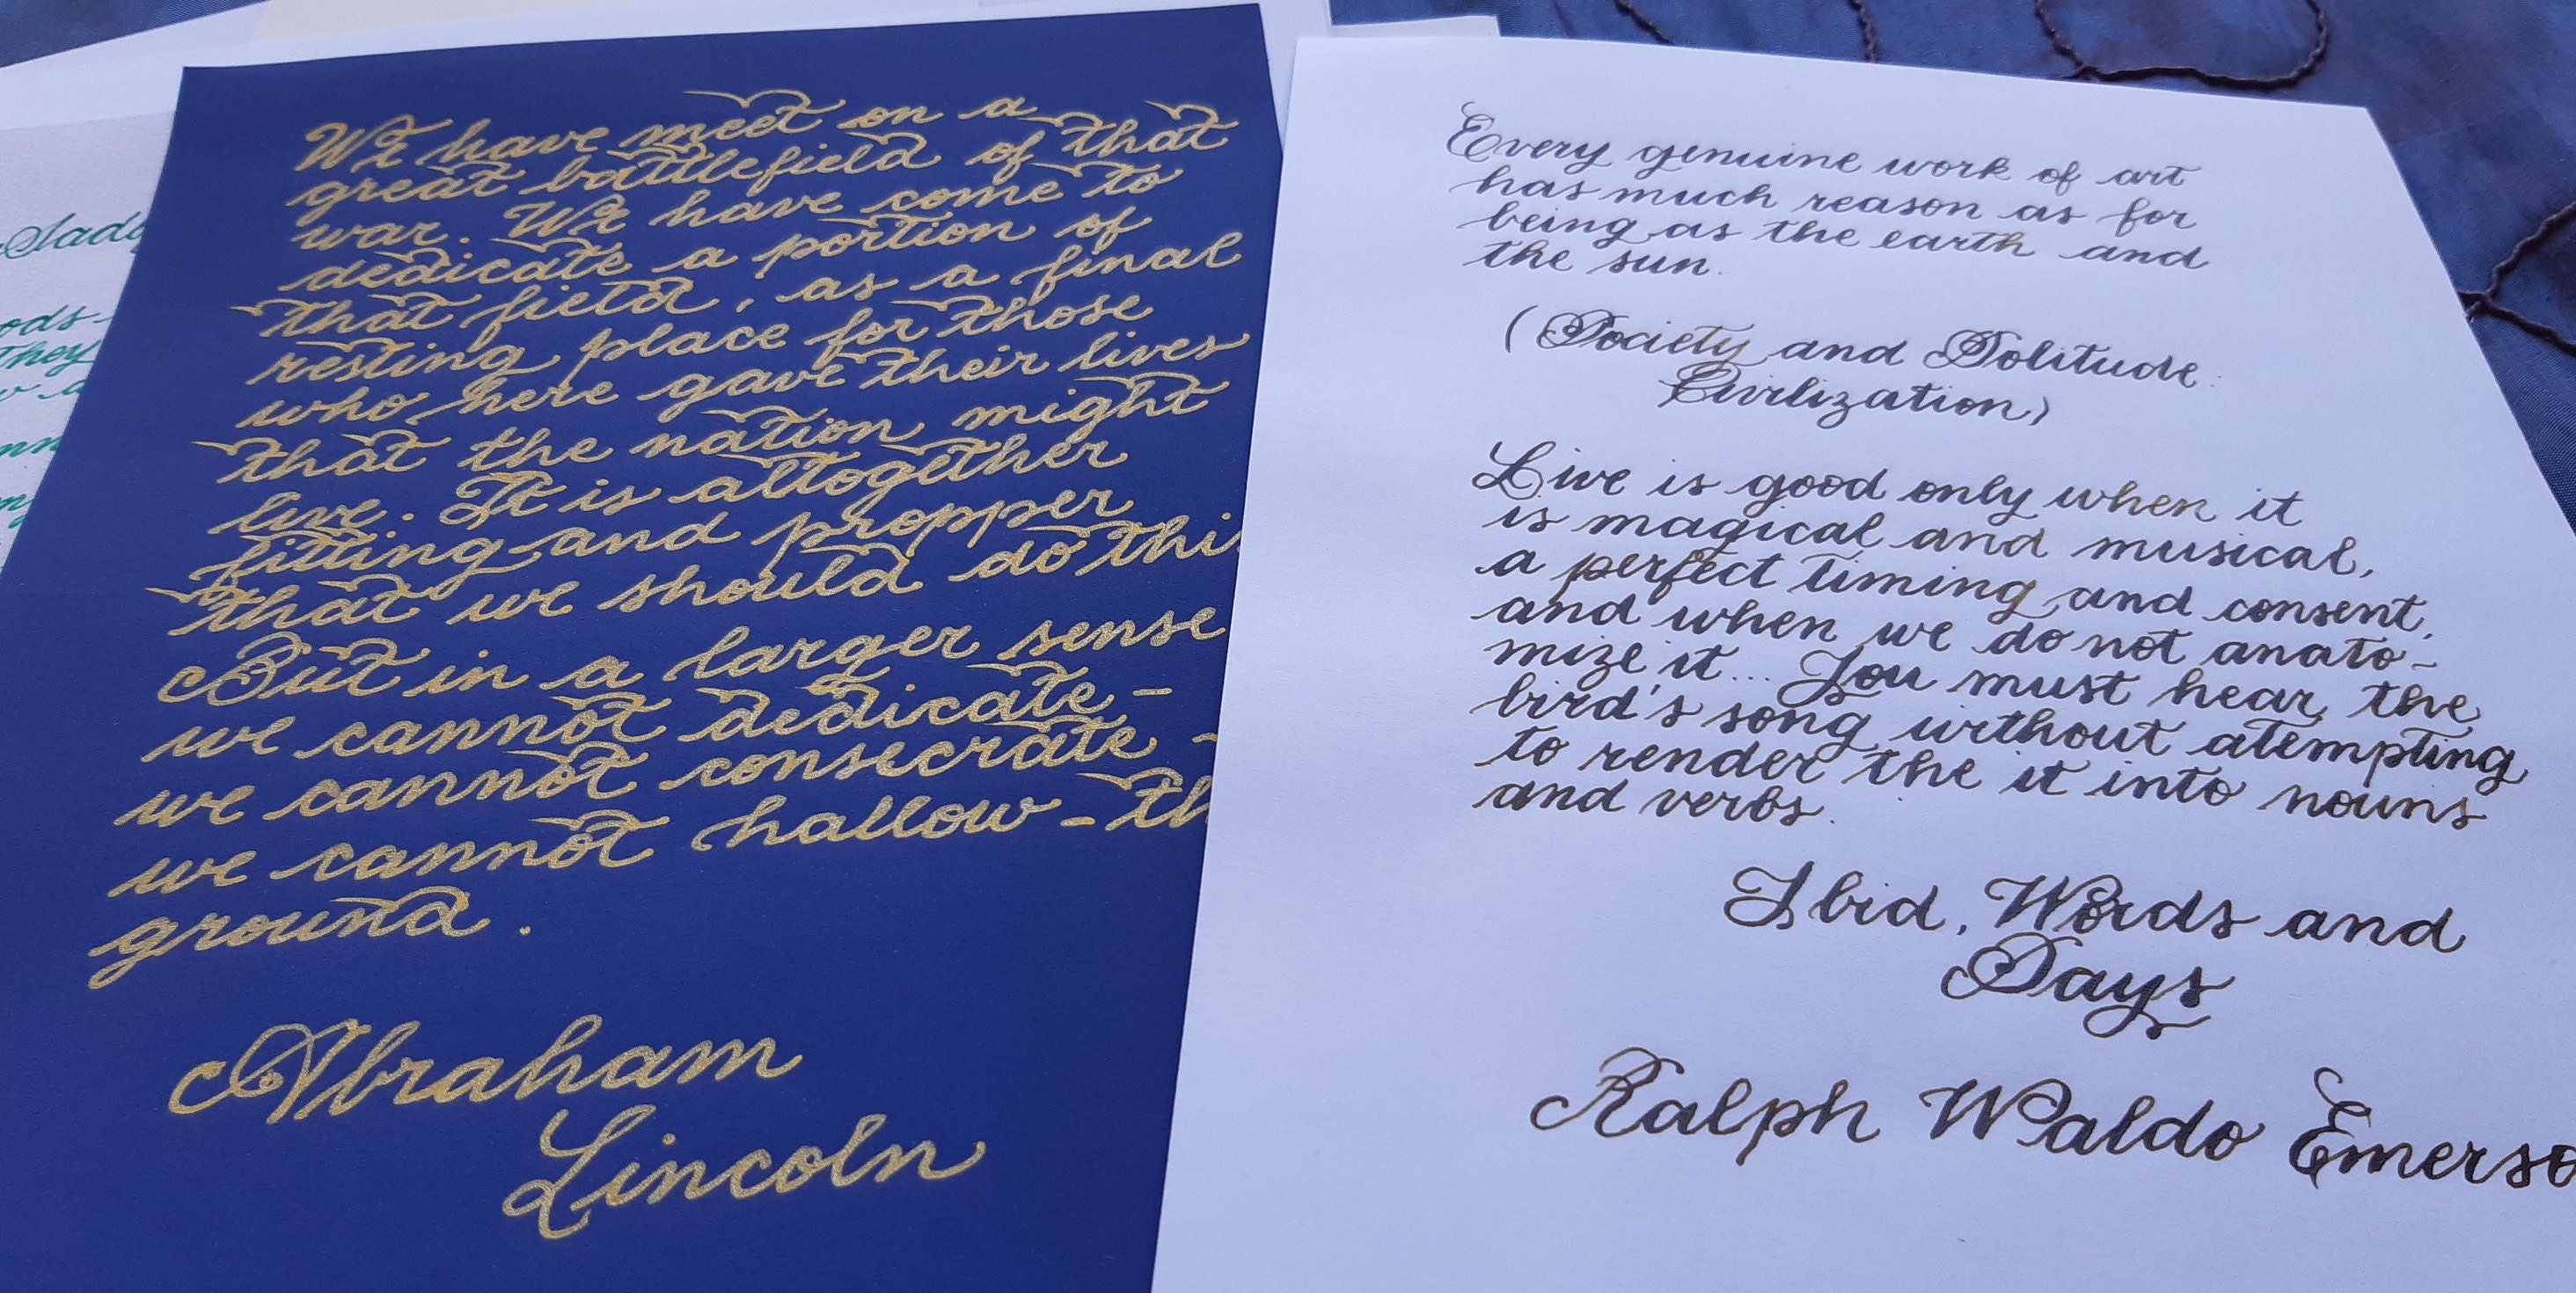 Sady
ods-
they
We have meet on a
great battlefield of that
war. We have come to
dedicate a portion of
that field, as a final
resting place for those
who here gave their lives
that the nation might
live. It is altogether
fitting and propper
that we should do thi
But in a larger sense
we cannot dedicate -
we cannot consecrate -
we cannot hallow - th
ground.
Abraham
Lincoln
Every genuine work of art
has much reason as for
being as the earth and
the sun.
(Society and Solitude:
Civilization)
Live is good only when it
is magical and musical,
a perfect timing and consent,
and when we do not anato-
mize it... You must hear the
bird's song without atempting
to render the it into nouns
and verbs.
Ibid, Words and
Days
Ralph Waldo Emerso